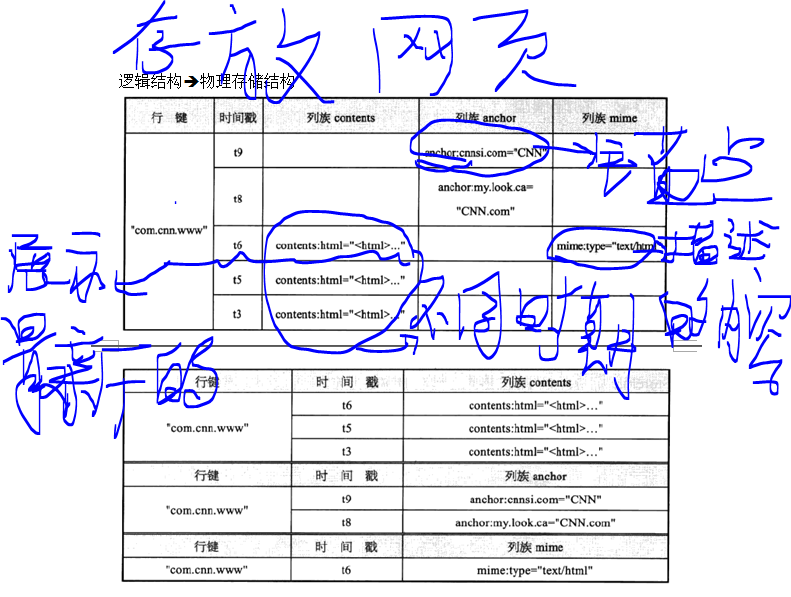 存放网页
逻辑结构➔物理存储结构
行 键 时间戳 列族 contents 列族 anchor 列族 mime
"com.cnn.www" t9 anchor:cnnsi.com="CNN"
t8 anchor:my.look.ca="CNN.com"
t6 contents:html="<html>…" mime:type="text/html
t5 contents:html="<html>…"
t3 contents:html="<html>…"
描述
展示
最新的
不同时期的内容
行键 时 间 戳 列族 contents
"com.cnn.www" t6 contents:html="<html>…"
t5 contents:html="<html>…"
t3 contents:html="<html>…"
行键 时 间 戳 列族 anchor
"com.cnn.www" t9 anchor:cnnsi.com="CNN"
t8 anchor:my.look.ca="CNN.com"
行键 时 间 戳 列族 mime
"com.cnn.www" t6 mime:type="text/html"